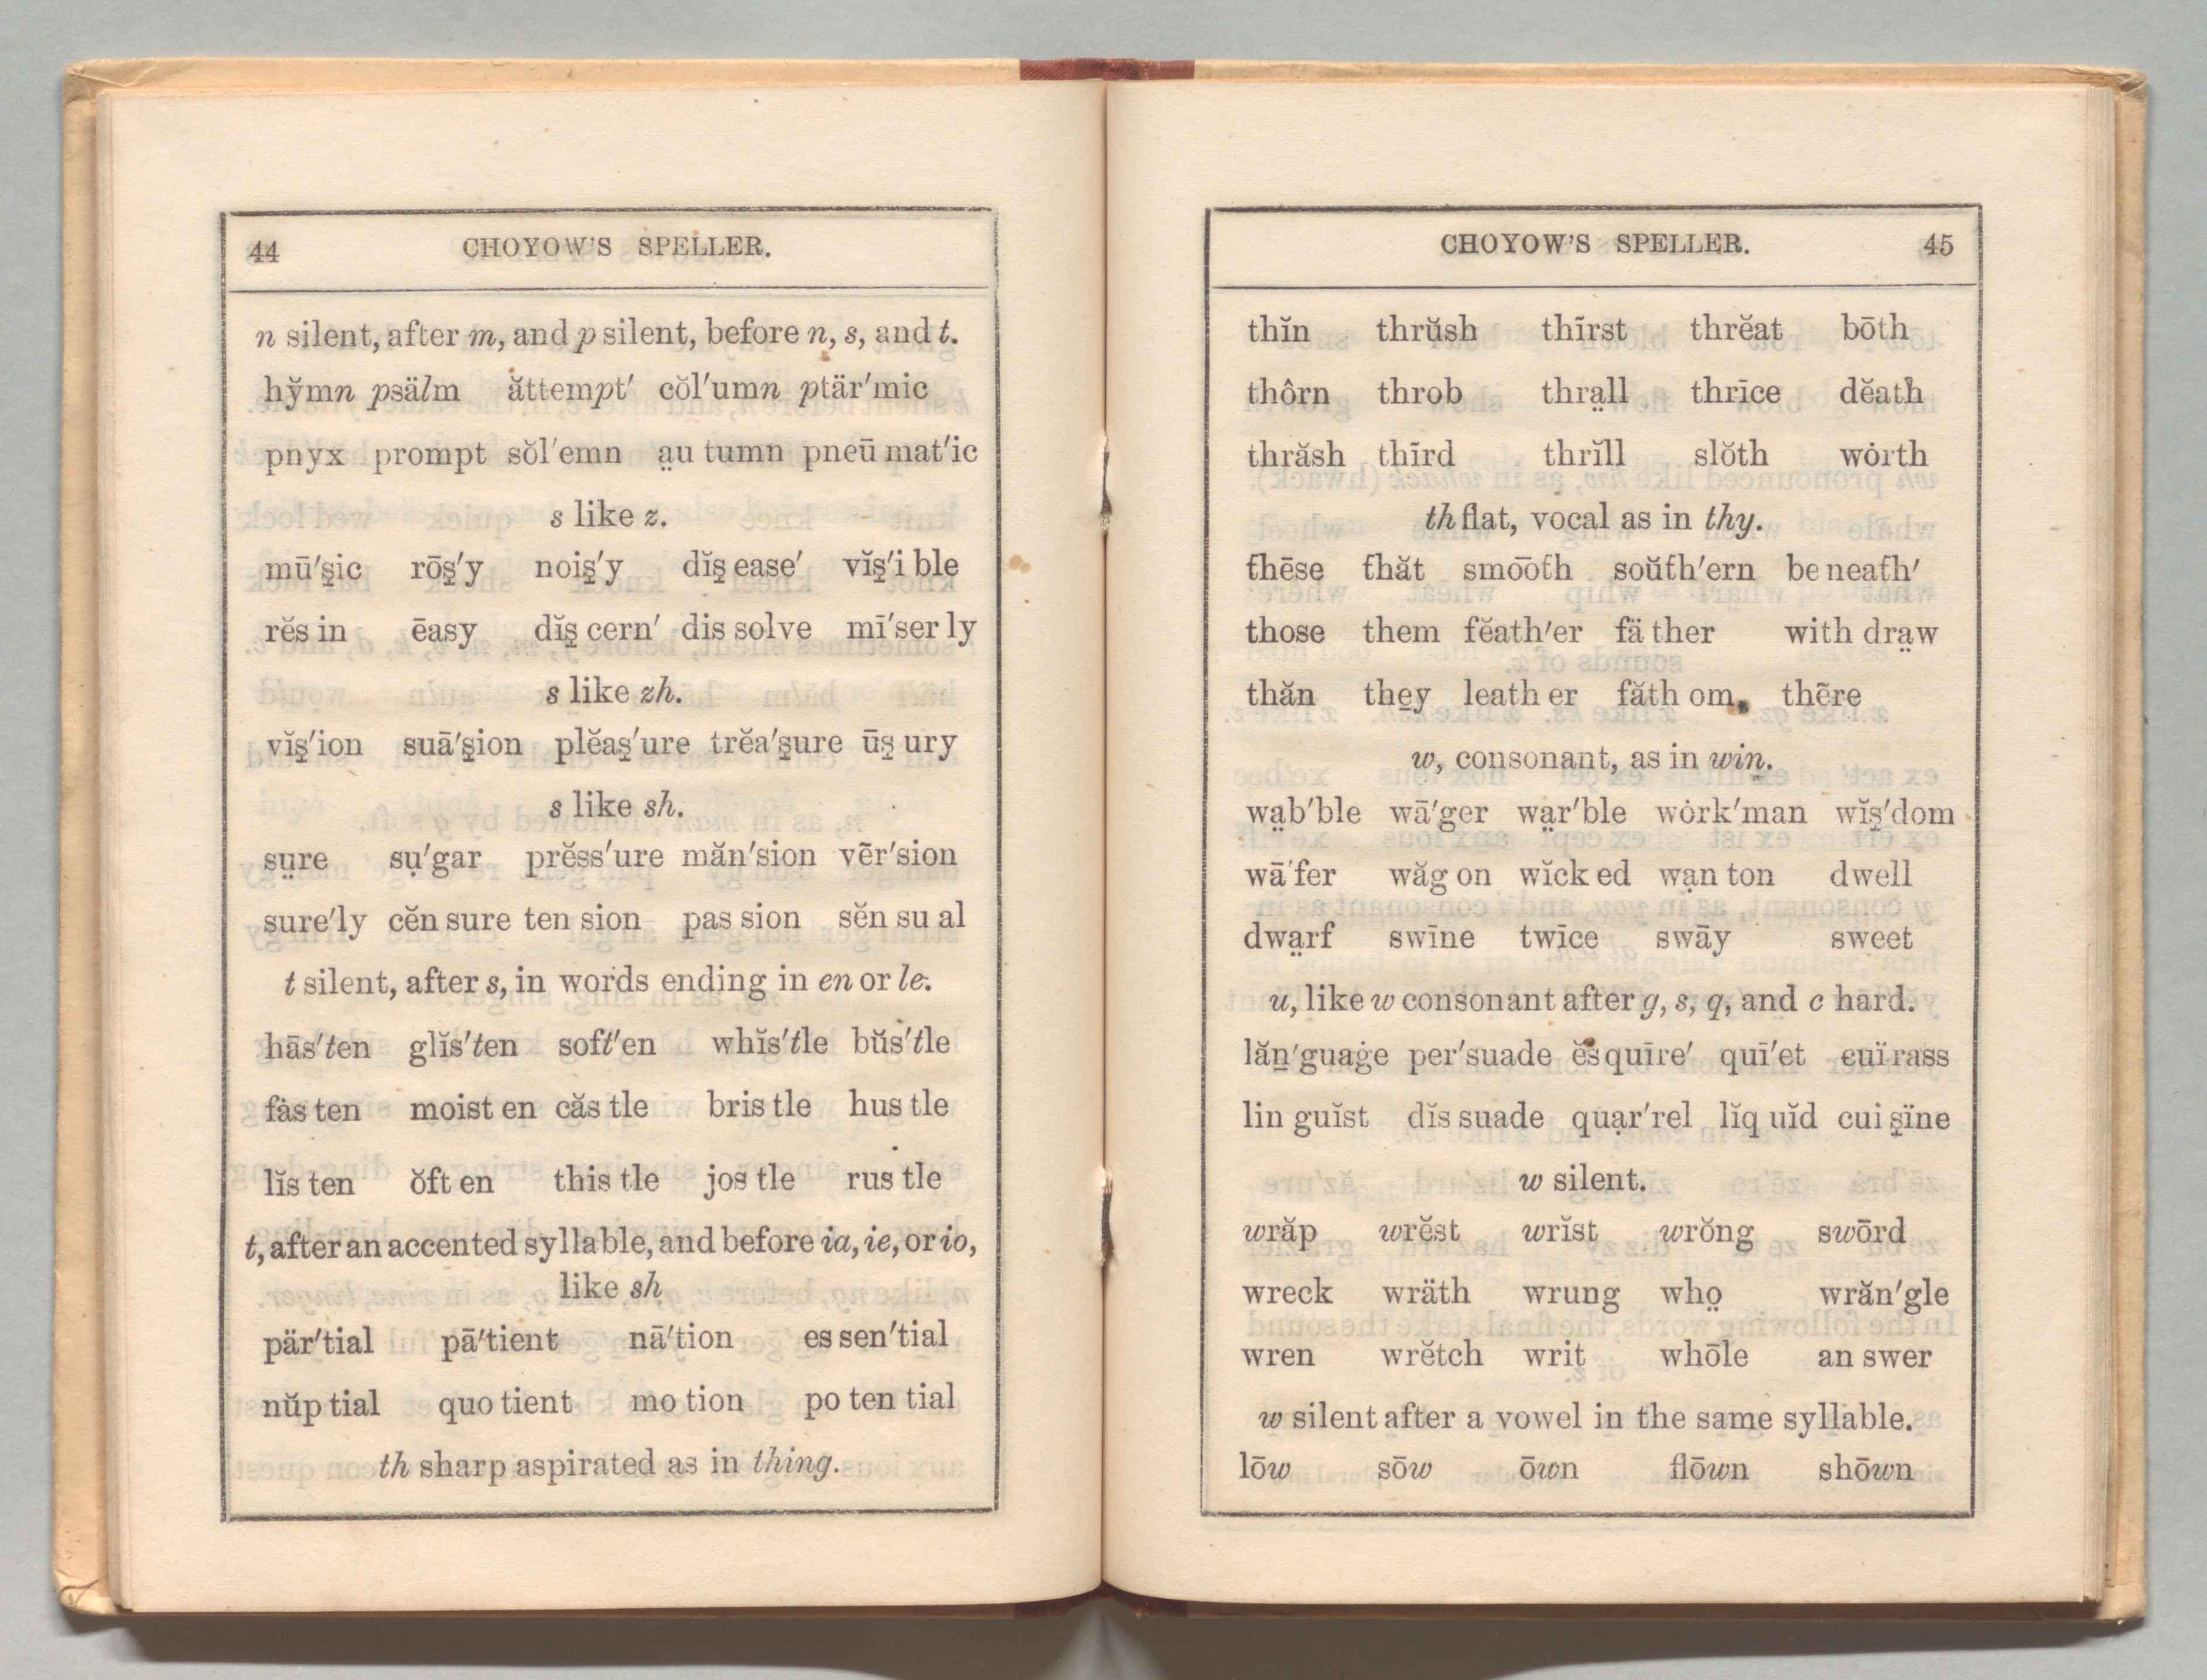 44 CHOYOW'S SPELLER.
n silent, after m, and p silent, before n, s, and t.
hy̆mn psälm ăttempt' cŏl'umn ptär'mic
pnyx prompt sŏl'emn a̤u tumn pneū mat'ic
s like z.
mū's̱ic rōs̱'y nois̱'y dĭs̱ ease' vĭs̱'i ble
rĕs in ēasy dĭs̱ cern' dis solve mī'ser ly
s like zh.
vĭs̱'ion suā's̱ion plĕas̱'ure trĕa's̱ure ūs̱ ury
s like sh.
sṳre sụ'gar prĕss'ure măn'sion vẽr'sion
sure'ly cĕn sure ten sion pas sion sĕn su al
t silent, after s, in words ending in en or le.
hās'ten glĭs'ten soft'en whĭs'tle bŭs'tle
fȧs ten moist en căs tle bris tle hus tle
lĭs ten ŏft en this tle jos tle rus tle
t, after an accented syllable, and before ia, ie, or io,
like sh
pär'tial pā'tient nā'tion es sen'tial
nŭp tial quo tient mo tion po ten tial
th sharp aspirated as in thing.
CHOYOW'S SPELLER. 45
thĭn thrŭsh thĩrst thrĕat bōth
thôrn throb thra̤ll thrīce dĕath
thrăsh thĩrd thrĭll slŏth wȯrth
th flat, vocal as in thy.
thēse thăt smōōth soŭth'ern be neath'
those them fĕath'er fä ther with dra̤w
thăn the̱y leath er făth om. thẽre
w, consonant, as in win.
wa̤b'ble wā'ger wa̤r'ble wȯrk'man wĭs̱'dom
wā'fer wăg on wĭck ed wạn ton dwell
dwa̤rf swīne twīce swāy sweet
u, like w consonant after g, s, q, and c hard.
lăṉ'guaġe per'suade ĕs quīre' quī'et cuï rass
lin guĭst dĭs suade quạr'rel lĭq uĭd cui s̱ïne
w silent.
wrăp wrĕst wrĭst wrŏng swōrd
wreck wräth wrung who̤ wrăn'gle
wren wrĕtch writ whōle an swer
w silent after a vowel in the same syllable.
lōw sōw ōwn flōwn shōwn